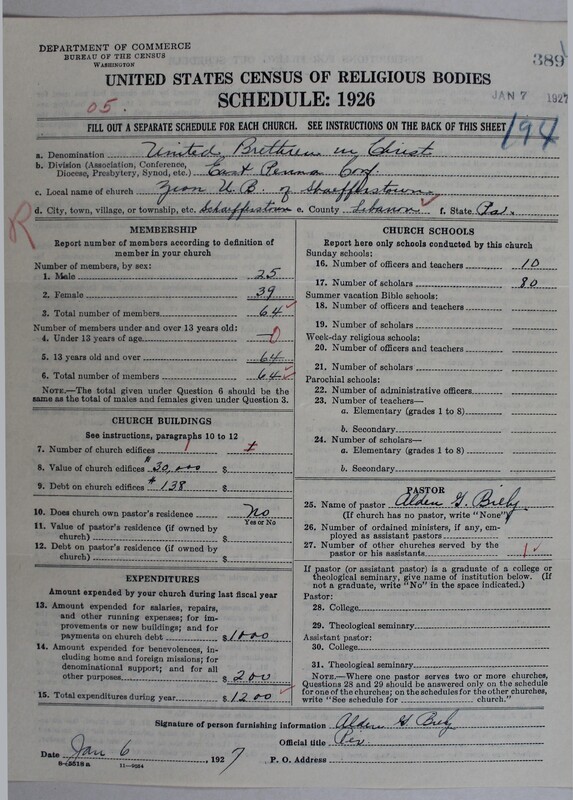 DEPARTMENT OF COMMERCE
BUREAU OF THE CENSUS
WASHINGTON
389
UNITED STATES CENSUS OF RELIGIOUS BODIES
SCHEDULE: 1926
JAN 7 1927
05.
FILL OUT A SEPARATE SCHEDULE FOR EACH CHURCH. SEE INSTRUCTIONS ON THE BACK OF THIS SHEET
194
a. Denomination United Brethren in Christ
b. Division (Association, Conference, Diocese, Presbytery, Synod, etc.) East Penna Conf.
c. Local name of church Zion U.B. of Shaefferstown
d. City, town, village, or township, etc. Schaefferstown e. County Lebanon f. State Pa.
R
MEMBERSHIP
Report number of members according to definition of
member in your church
Number of members, by sex:
1. Male 25
2. Female 39
3. Total number of members 64
Number of members under and over 13 years old:
4. Under 13 years of age 0
5. 13 years old and over 64
6. Total number of members 64
NOTE.—The total given under Question 6 should be the
same as the total of males and females given under Question 3.
CHURCH BUILDINGS
See instructions, paragraphs 10 to 12
7. Number of church edifices 1 1
8. Value of church edifices $30,000 $
9. Debt on church edifices $138 $
10. Does church own pastor's residence? No
Yes or No
11. Value of pastor's residence (if owned by
church) $
12. Debt on pastor's residence (if owned by
church) $
EXPENDITURES
Amount expended by your church during last fiscal year
13. Amount expended for salaries, repairs,
and other running expenses; for im-
provements or new buildings; and for
payments on church debt $1000
14. Amount expended for benevolences, in-
cluding home and foreign missions; for
denominational support; and for all
other purposes $200
15. Total expenditures during year $1200
CHURCH SCHOOLS
Report here only schools conducted by this church
Sunday schools:
16. Number of officers and teachers 10
17. Number of scholars 80
Summer vacation Bible schools:
18. Number of officers and teachers
19. Number of scholars
Week-day religious schools:
20. Number of officers and teachers
21. Number of scholars
Parochial schools:
22. Number of administrative officers
23. Number of teachers—
a. Elementary (grades 1 to 8)
b. Secondary
24. Number of scholars—
a. Elementary (grades 1 to 8)
b. Secondary
PASTOR
25. Name of pastor Alden G. Biely
(If church has no pastor, write "None")
26. Number of ordained ministers, if any, em-
ployed as assistant pastors
27. Number of other churches served by the
pastor or his assistants 1
If pastor (or assistant pastor) is a graduate of a college or
theological seminary, give name of institution below. (If
not a graduate, write "No" in the space indicated.)
Pastor:
28. College
29. Theological seminary
Assistant pastor:
30. College
31. Theological seminary
NOTE.—Where one pastor serves two or more churches,
Questions 28 and 29 should be answered only on the schedule
for one of the churches; on the schedules for the other churches,
write "See schedule for church."
Signature of person furnishing information Alden G. Biely
Official title Rev.
Date Jan 6, 1927 P. O. Address
8-5518a 11-9264